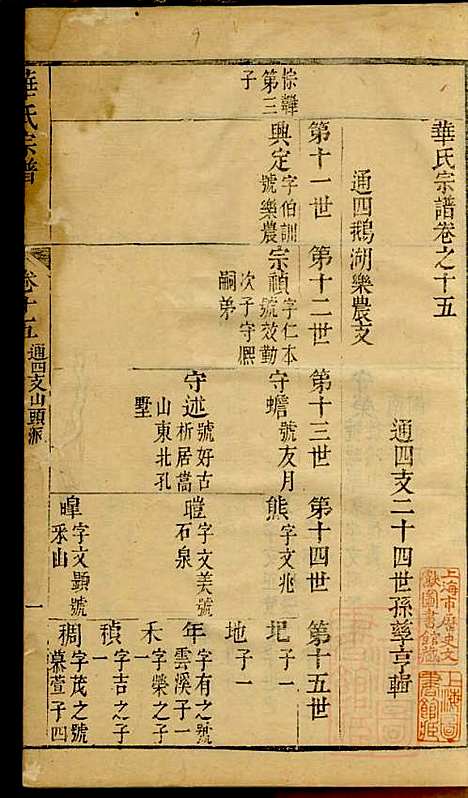 華氏宗譜卷之十五
通四支二十四世孫孳亨輯
上海市歷史文
獻圖書館藏
上海圖
書館藏
通四鵝湖樂農支
第十一世
第十二世
第十三世
第十四世
第十五世
悰韡
第三
子
興定
字伯訓
號樂農
宗禎
字仁本
號效勤
次子守熙
嗣弟
守蟾
號友月
熊
字文兆
圯
子一
地
子一
守述
號好古
析居嵩
山東北孔
墅
暟
字文美號
石泉
年
字有之號
雲溪子一
禾
字榮之子
一
暭
字文顥號
釆山
禎
字吉之子
一
稠
字茂之號
慕萱子四
華氏宗譜
卷十五
通四支山頭派
一